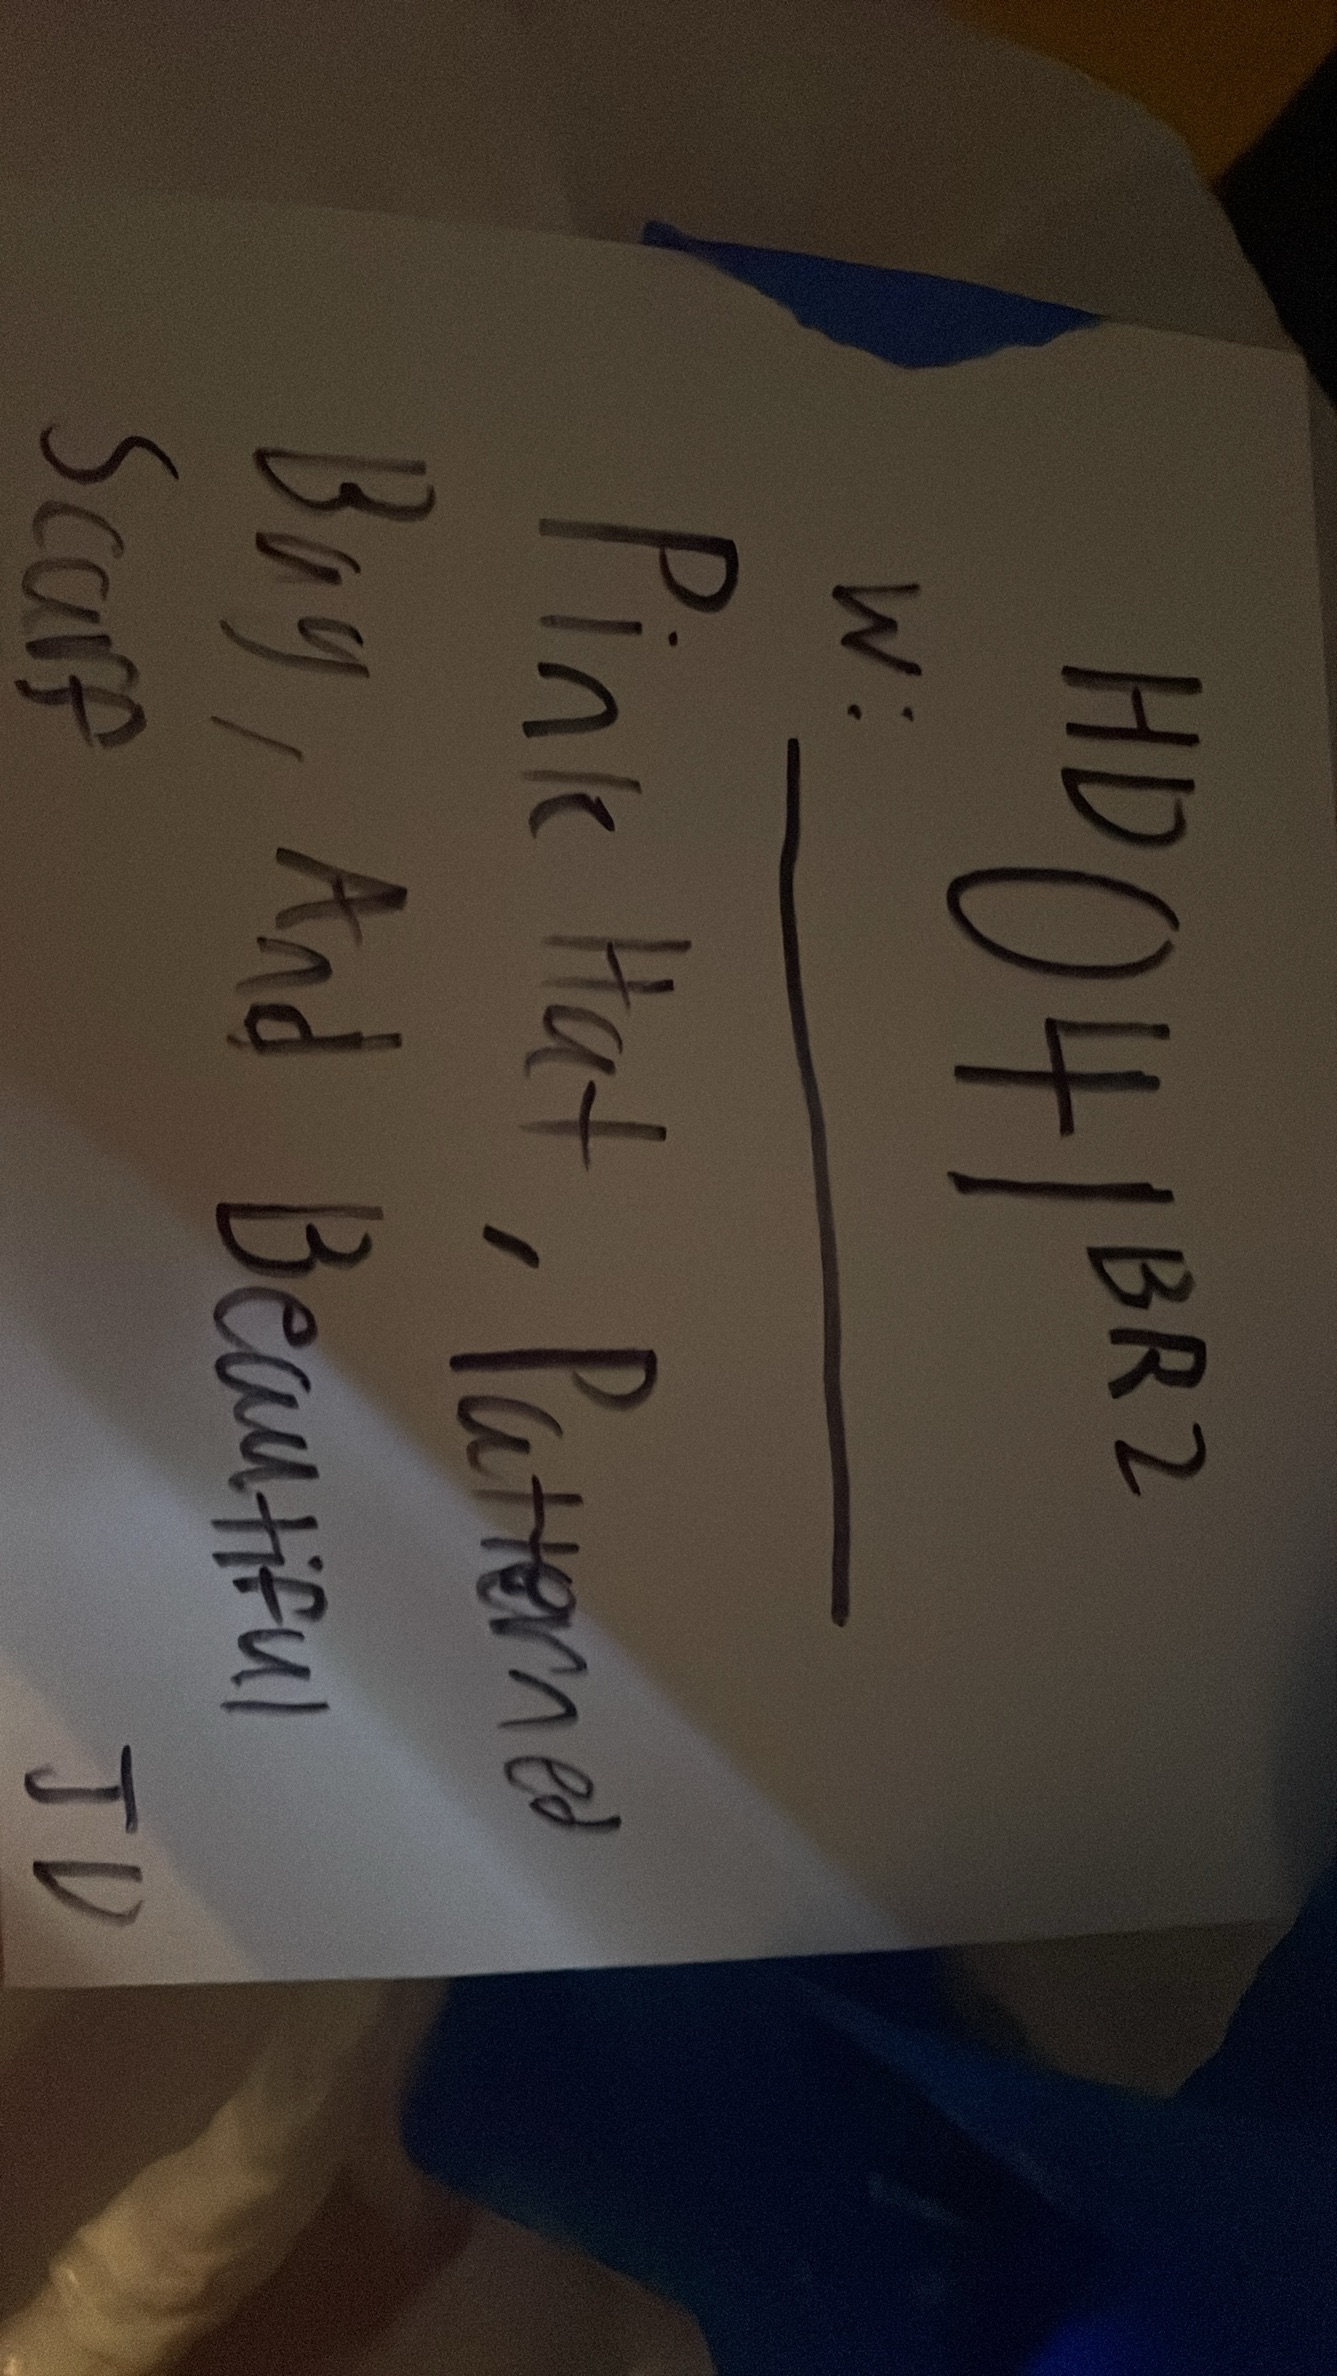 HD041BR2
W:
Pink Hat, Patterned
Bag, And Beautiful
Scarf
JD